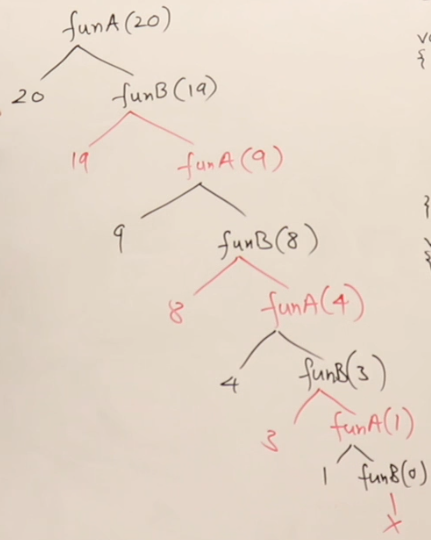 funA(20)
20 funB(19)
19 funA(9)
9 funB(8)
8 funA(4)
4 funB(3)
3 funA(1)
1 funB(0)
X